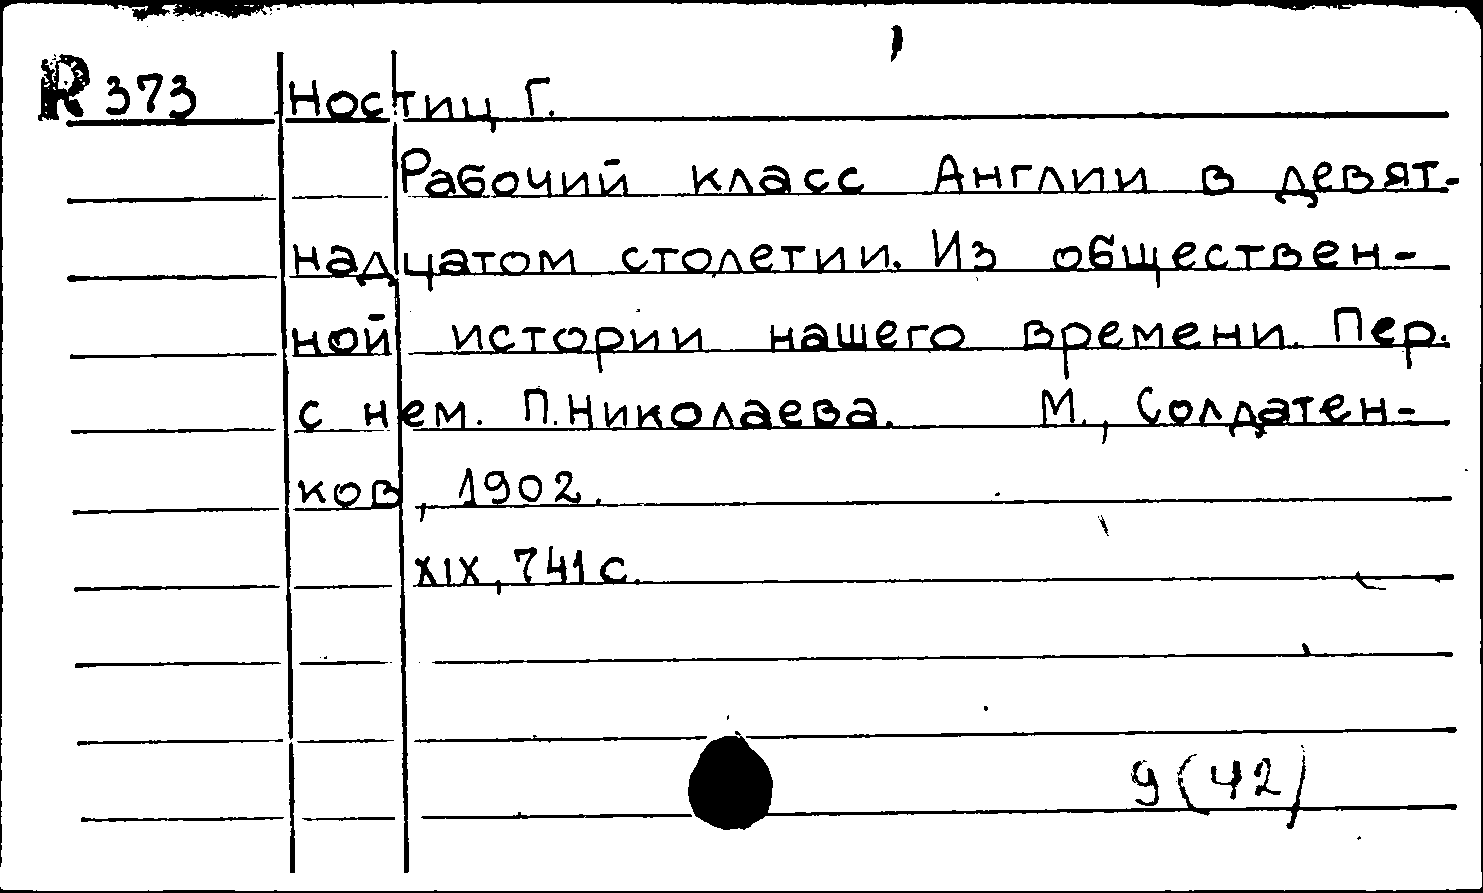 R 373 Ностиц Г.
Рабочий класс Англии в девят-
надцатом столетии. Из обществен-
ной истории нашего времени. Пер.
с нем. П.Николаева. М., Солдатен-
ков, 1902.
XIX, 741 с.
9(42)